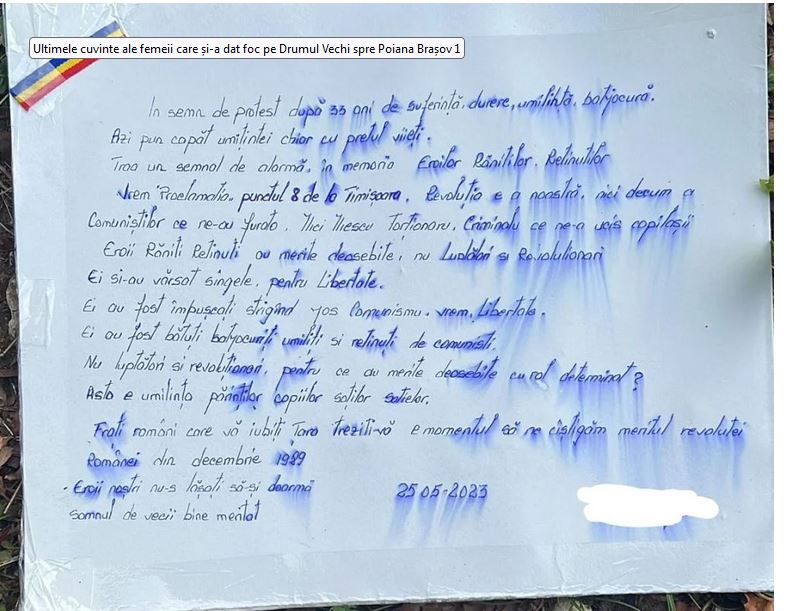 Ultimele cuvinte ale femeii care și-a dat foc pe Drumul Vechi spre Poiana Brașov 1
În semn de protest după 33 ani de suferință, durere, umilință, batjocură.
Azi pun capăt umilinței chiar cu prețul vieți.
Trag un semnal de alarmă, în memoria Eroilor Răniților, Reținuților
Vrem "Proclamația, punctul 8 de la Timișoara, Revoluția e a noastră, nici decum a
Comuniștilor ce ne-au furato, Ilici Iliescu Torționaru, Criminalu ce ne-a ucis copilașii
Eroii Răniți Reținuți au merite deosebite, nu Luptători și Revoluționari
Ei și-au vărsat sîngele, pentru Libertate.
Ei au fost împușcați strigînd jos Comunismu, vrem, Libertate.
Ei au fost bătuți batjocuriți umiliți si reținuți de comuniști.
Nu luptători si revoluționari, pentru ce au merite deosebite cu rol determinat?
Asta e umilința părinților copiilor soților soțielor.
Frați români care vă iubiți Țara treziți-vă e momentul să ne cîștigăm meritul revoluției
Românei din decembrie 1989
- Eroii noștri nu-s lăsați să-și doarmă
somnul de vecii bine meritat
25-05-2023